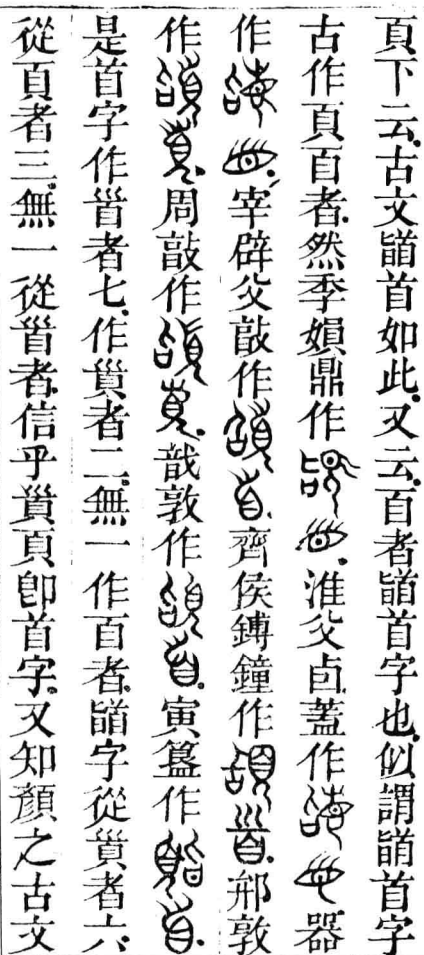 頁下云古文䭫首如此又云𦣻者䭫首字也似謂䭫首字
古作頁𦣻者然季媜鼎作淮父卣蓋作器
作宰辟父敦作齊侯鎛鐘作䢵敦
作周敦作戠敦作寅簋作
是首字作𩠐者七作者二無一作𦣻者䭫字從者六
從頁者三無一從𩠐者信乎頁卽首字又知顏之古文